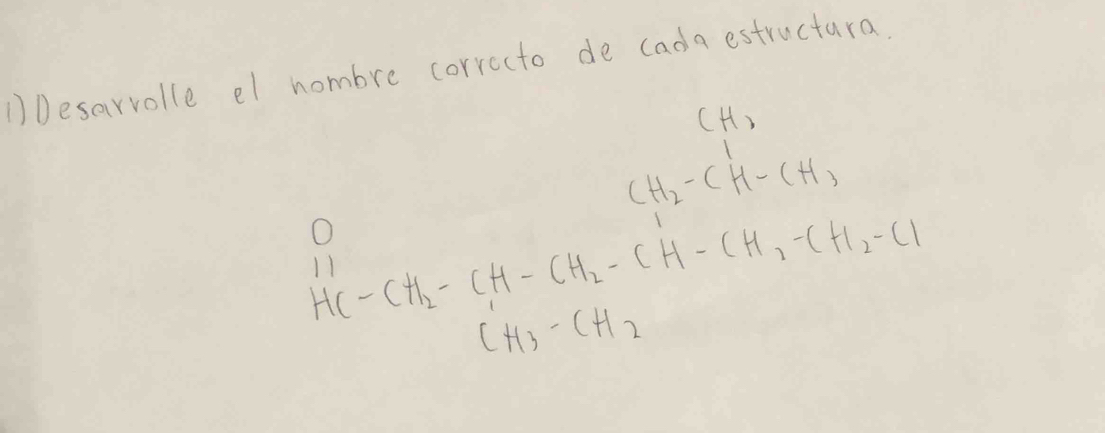 1) Desarrolle el nombre correcto de cada estructura.
CH3
|
CH2-CH-CH3
O |
|| HC-CH2-CH-CH2-CH-CH2-CH2-Cl
|
CH3-CH2